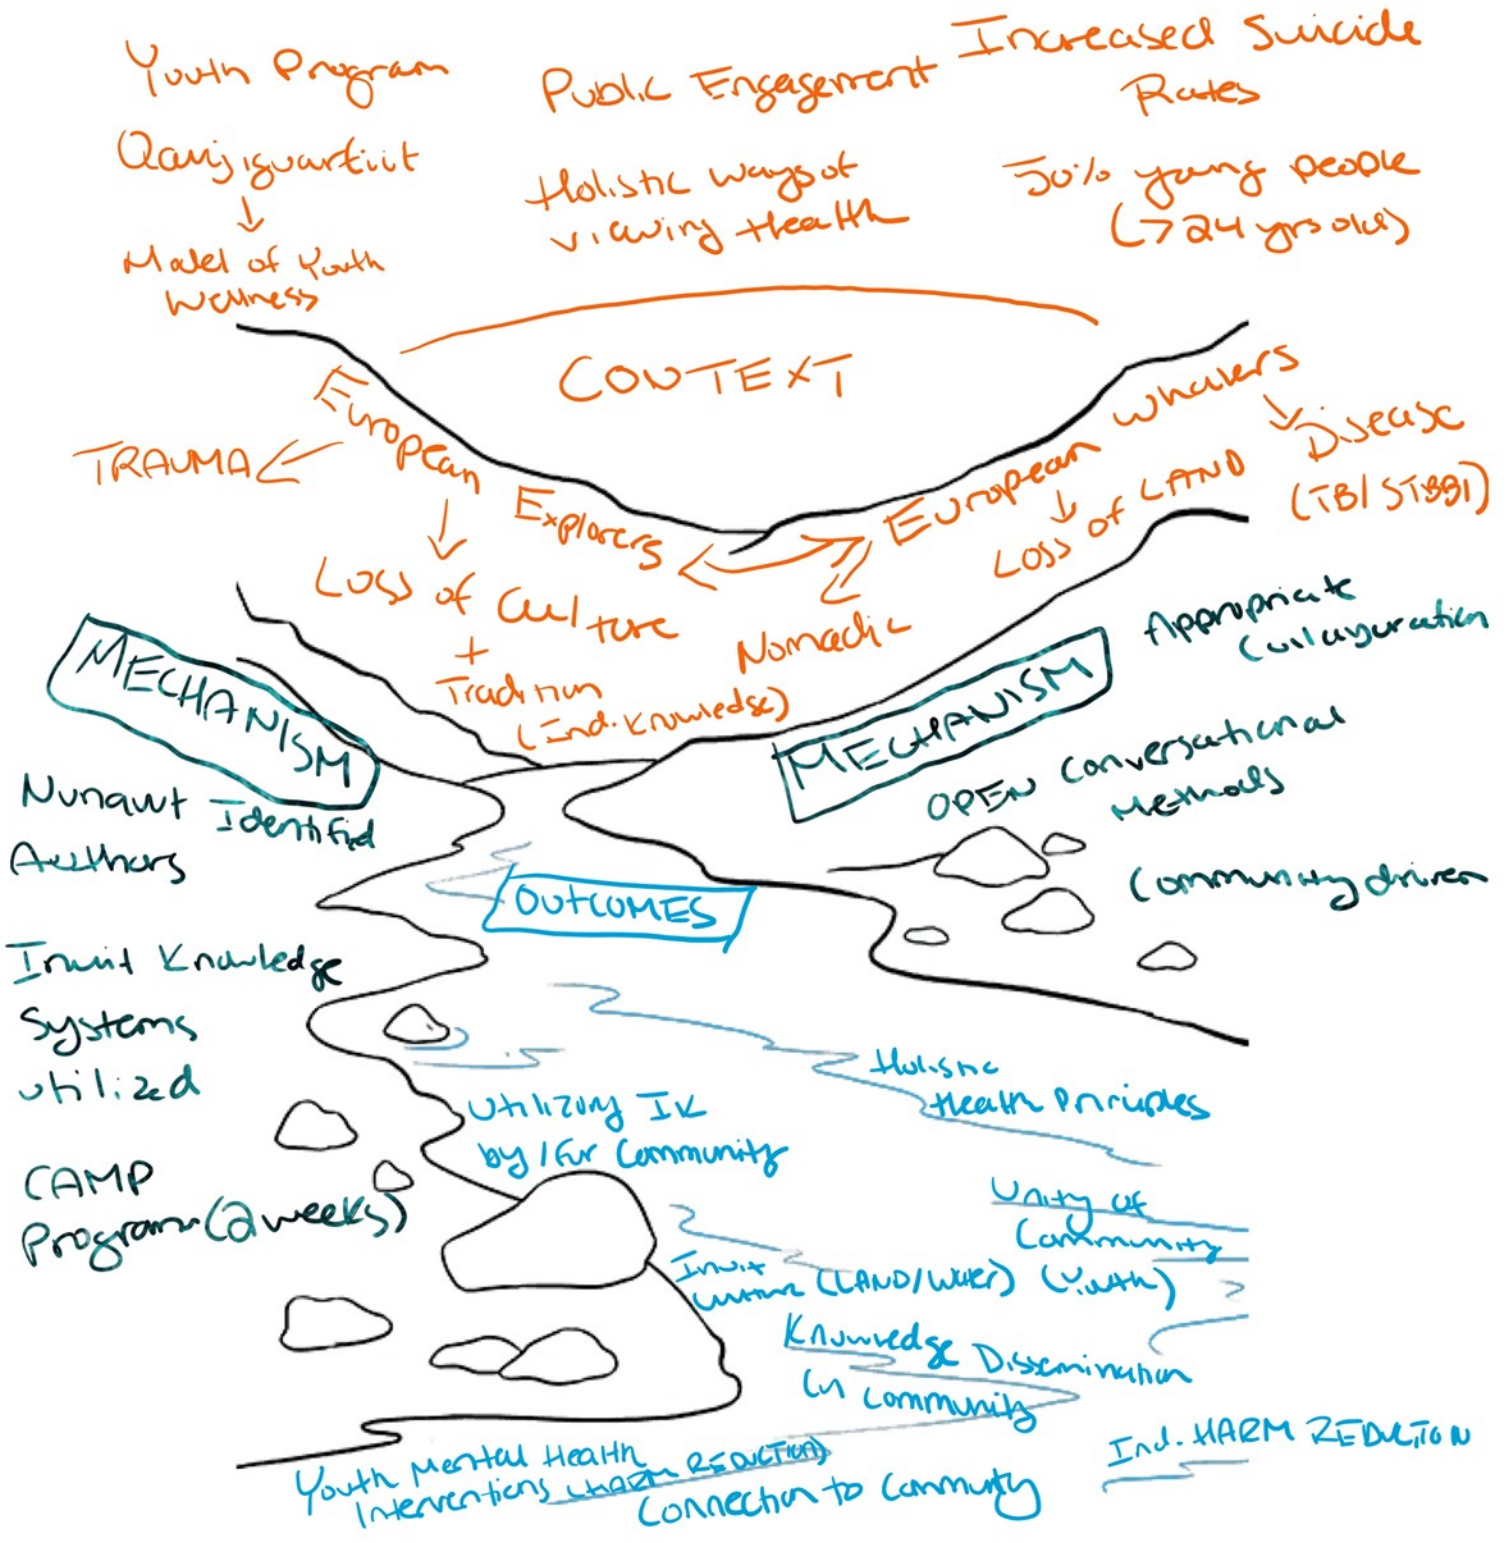 Youth Program
Qaujiguartiit
↓
Model of Youth
Wellness
Public Engagement
Holistic ways of
viewing Health
Increased Suicide
Rates
50% young people
(>24 yrs old)
CONTEXT
European Explorers
TRAUMA
Loss of Culture
+
Tradition
(Ind. Knowledge)
European whalers
Nomadic
Loss of LAND
Disease
(TB/STBBI)
MECHANISM
Nunavut Identified
Authors
Inuit Knowledge
Systems
utilized
CAMP
Program (2 weeks)
MECHANISM
Appropriate
Collaboration
OPEN Conversational
Methods
Community driven
OUTCOMES
Utilizing IK
by/for Community
Holistic
Health Principles
Unity of
Community
(Youth)
Inuit
Culture (LAND/Water)
Knowledge Dissemination
in Community
Youth Mental Health
Interventions (HARM REDUCTION)
Connection to Community
Ind. HARM REDUCTION